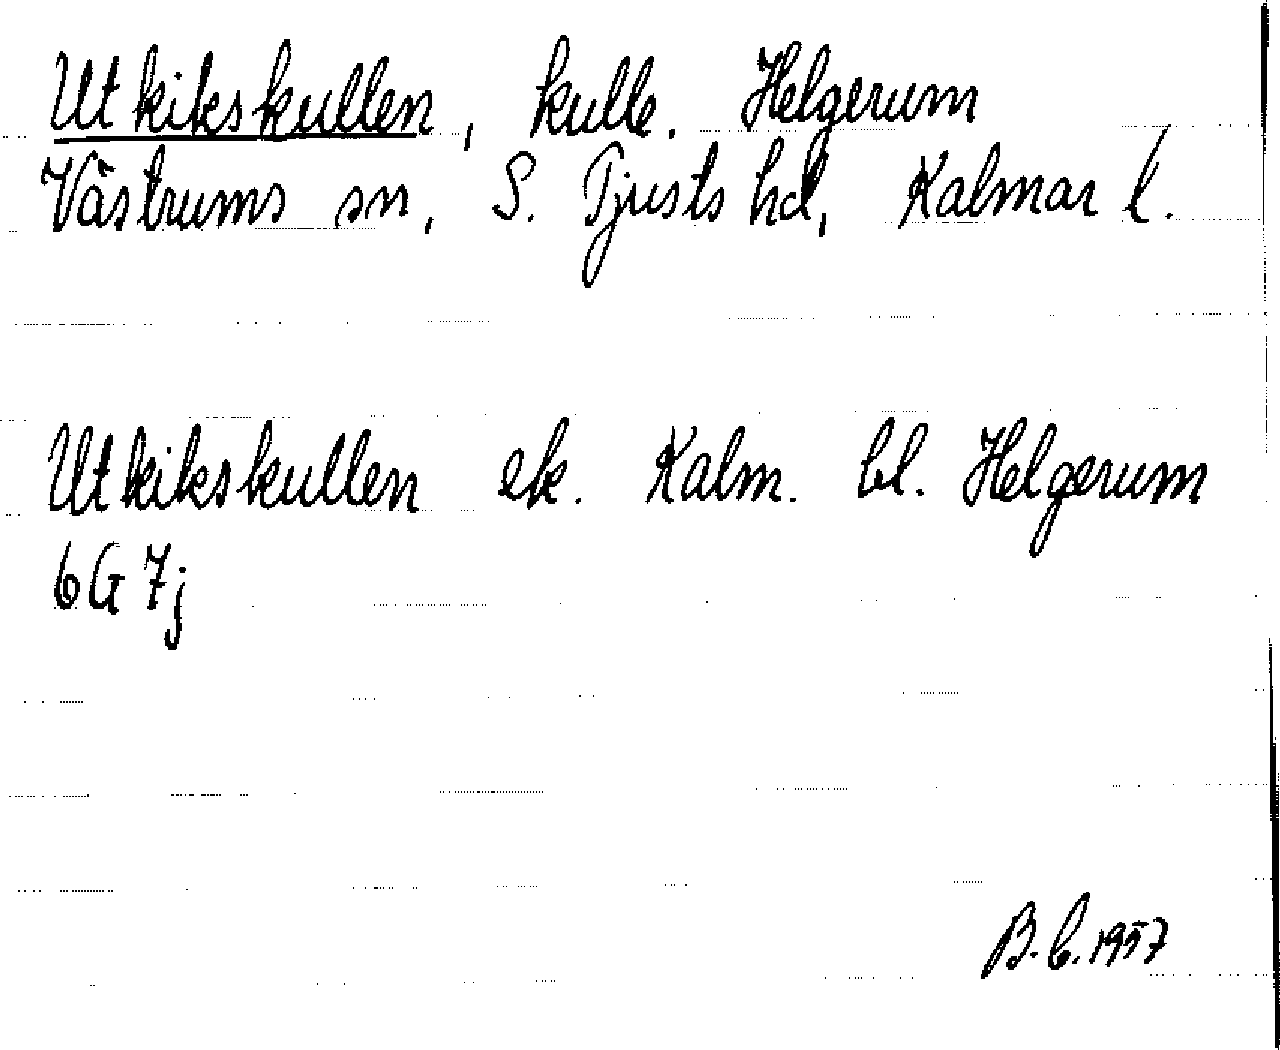 Utkikskullen, kulle. Helgerum
Västrums sn, S. Tjusts hd, Kalmar l.
Utkikskullen ek. Kalm. bl. Helgerum
6G 7j
B.C. 1957